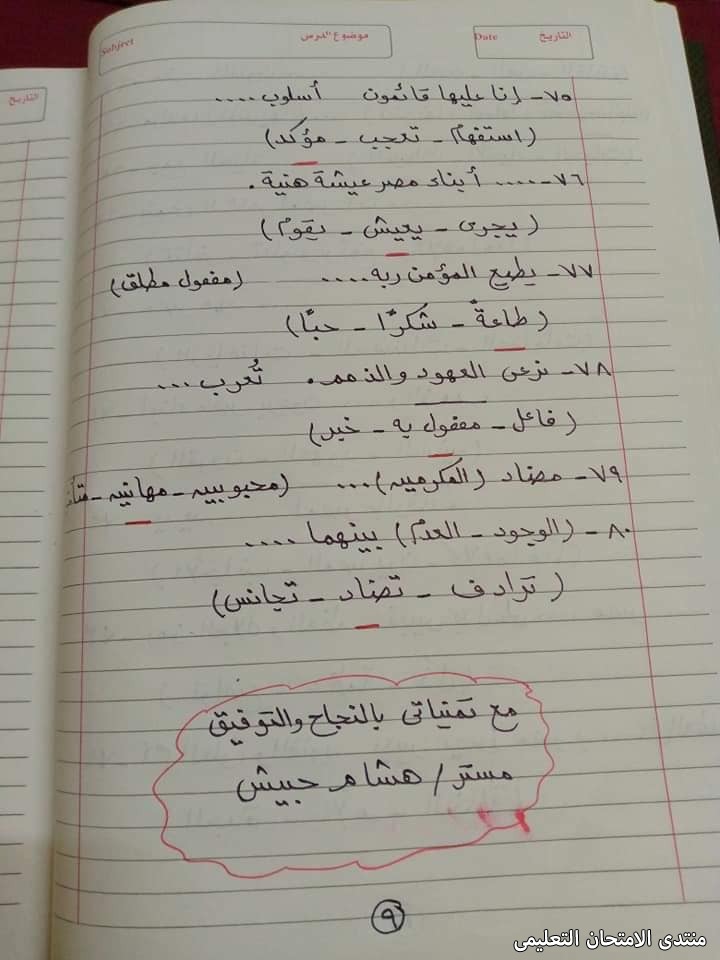 التاريخ
Date
موضوع الدرس
Subject
التاريخ
٧٥- إنا عليها قائمون أسلوب ....
(استفهام - تعجب - مؤكد)
٧٦- .... أبناء مصر عيشة هنية.
(يجرى - يعيش - يقوم)
٧٧- يطيع المؤمن ربه .... (مفعول مطلق)
(طاعةً - شكرًا - حبًا)
٧٨- نرعى العهود والذمم. تُعرب ...
(فاعل - مفعول به - خبر)
٧٩- مضاد (المكرمين) ... (محبوبين - مهانين -
٨٠- (الوجود - العدم) بينهما ....
(ترادف - تضاد - تجانس)
مع تمنياتى بالنجاح والتوفيق
مستر/ هشام حبيش
٩
منتدى الامتحان التعليمى